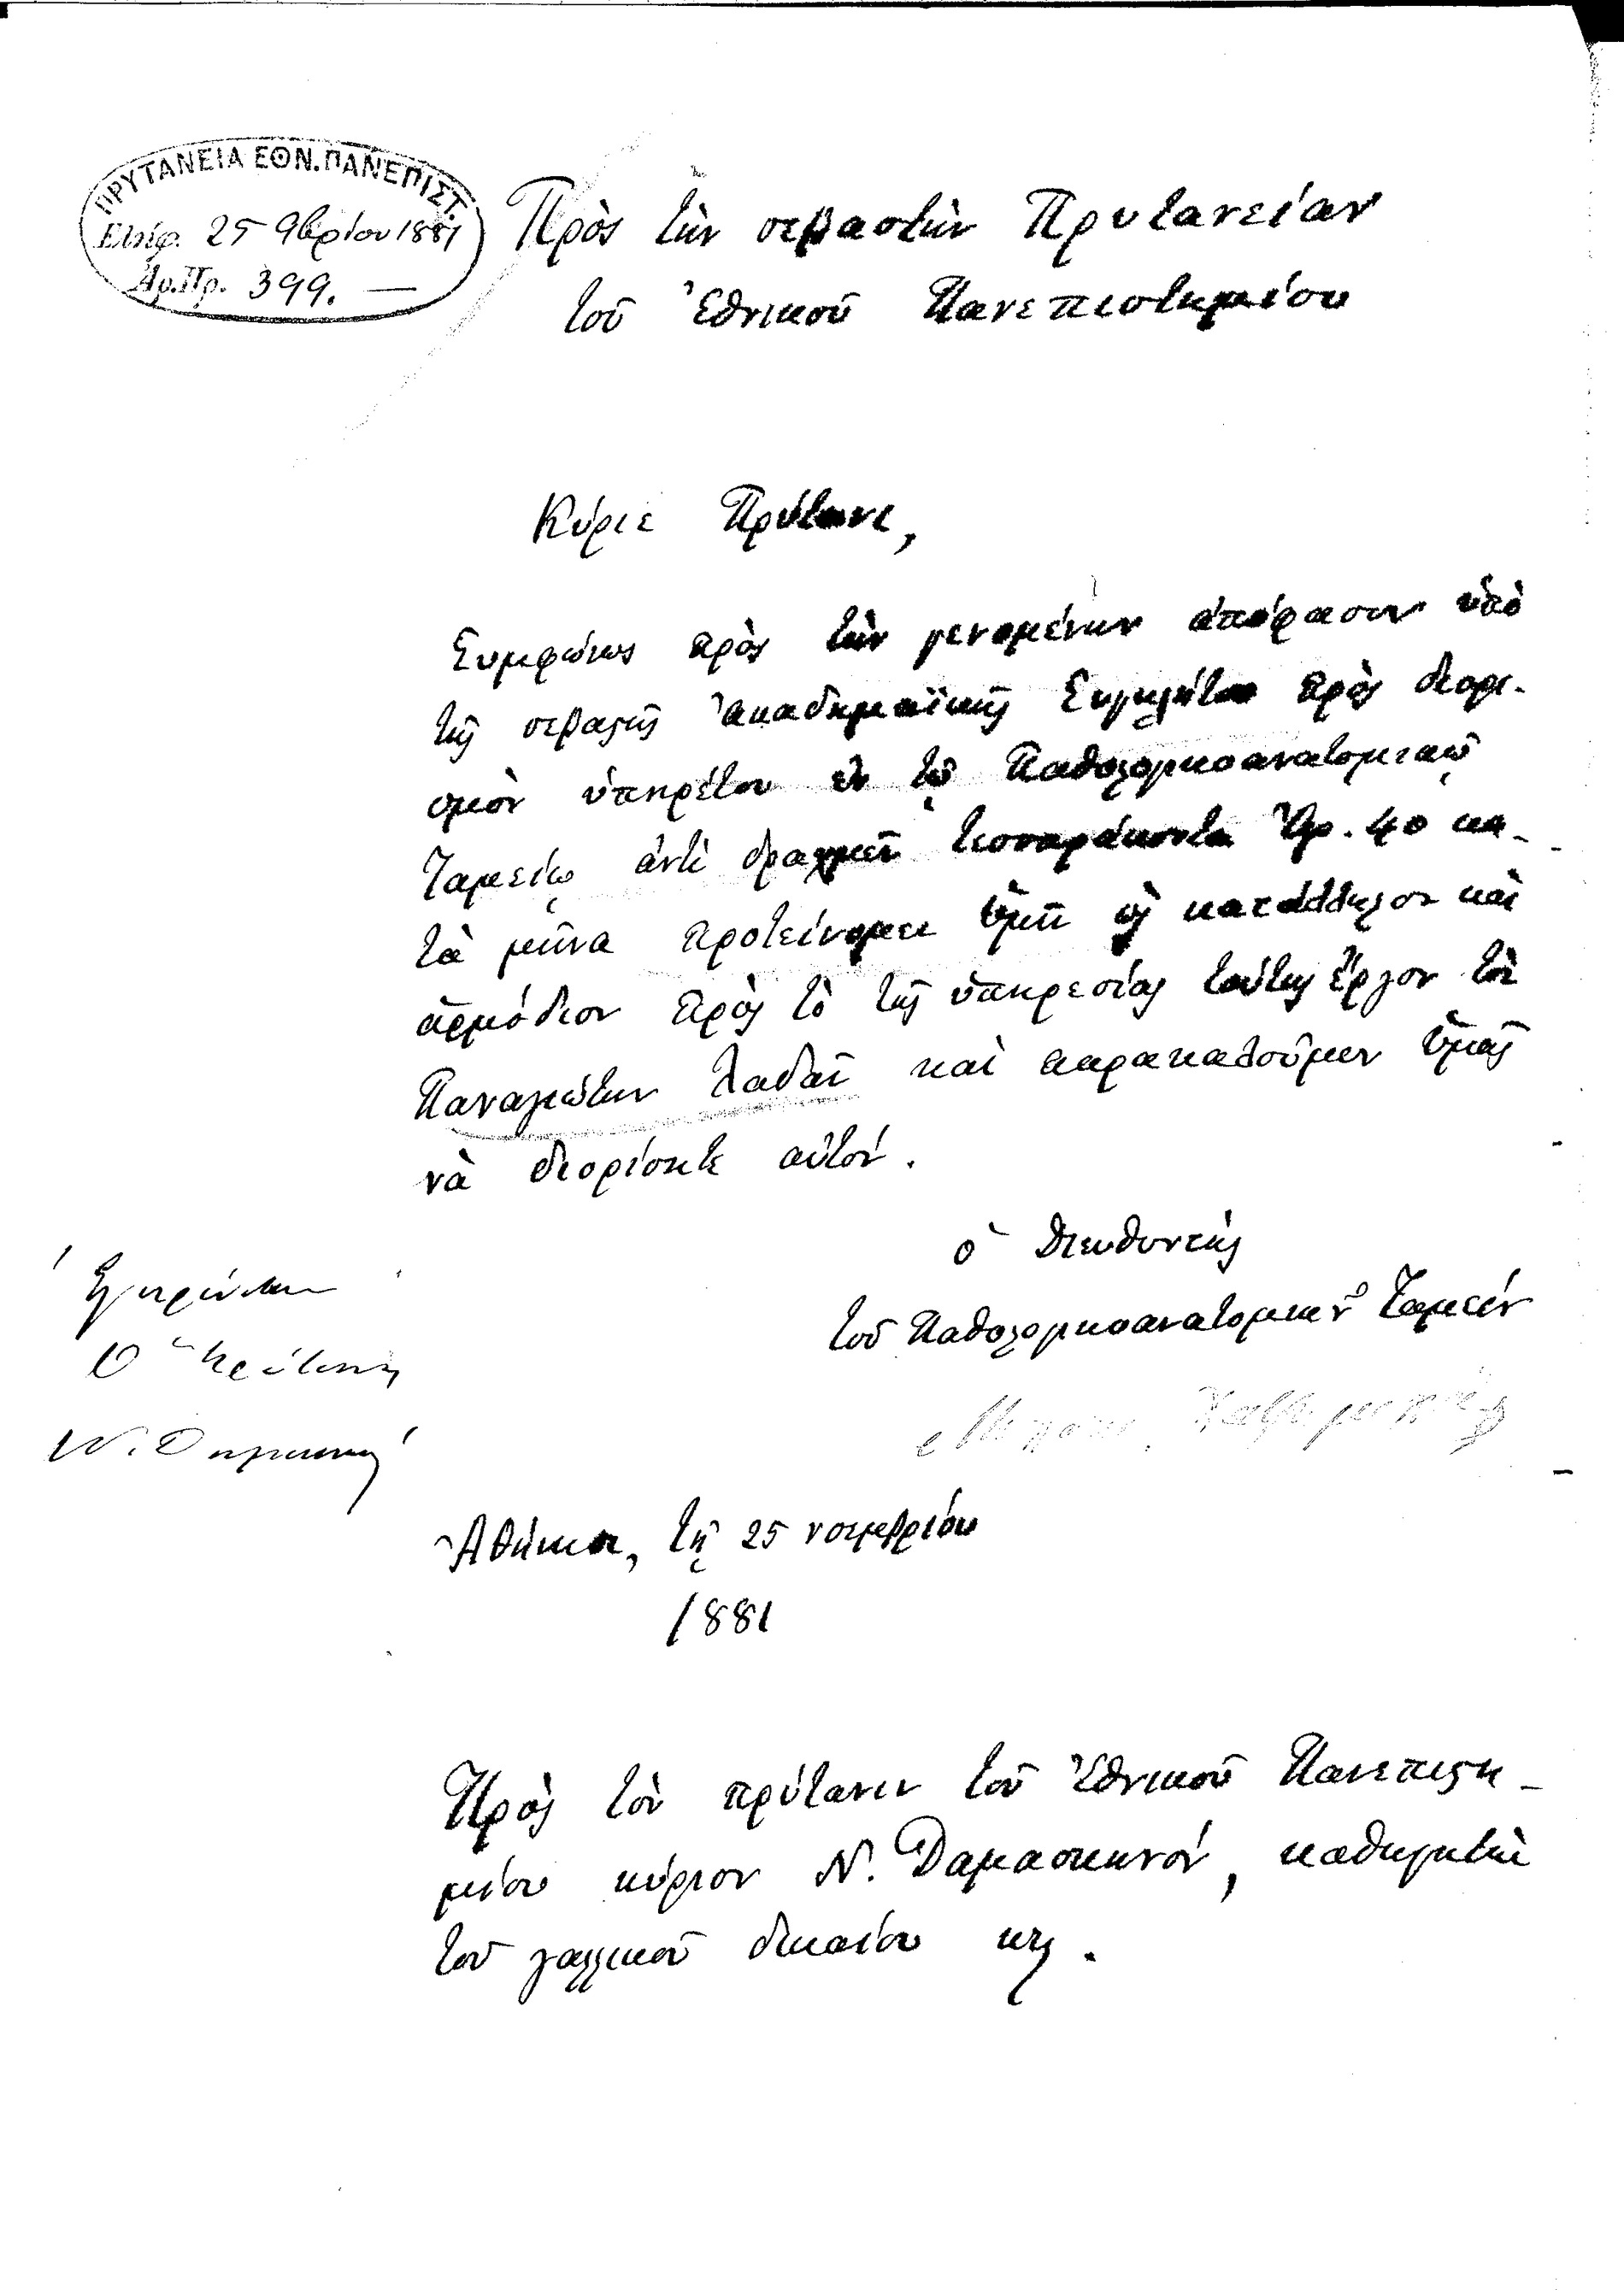 ΠΡΥΤΑΝΕΙΑ ΕΘΝ. ΠΑΝΕΠΙΣΤ.
Ελήφ. 25 9βρίου 1881
Αρ. Πρ. 399. —
Πρὸς τὴν σεβαστὴν Πρυτανείαν
τοῦ Ἐθνικοῦ Πανεπιστημείου
Κύριε Πρύτανι,
Συμφώνως πρὸς τὴν γενομένην ἀπόφασιν ὑπὸ
τῆς σεβαστῆς Ἀκαδημαϊκῆς Συγκλήτου πρὸς διορι-
σμὸν ὑπηρέτου ἐν τῷ Παθολογικοανατομικῷ
Ταμείῳ ἀντὶ δραχμῶν τεσσαράκοντα δρ. 40 κα-
τὰ μῆνα προτείνομεν ὑμῖν ὡς κατάλληλον καὶ
ἁρμόδιον πρὸς τὸ τῆς ὑπηρεσίας ταύτης ἔργον τὸν
Παναγιώτην Λαδᾶν καὶ παρακαλοῦμεν ὑμᾶς
νὰ διορίσητε αὐτόν.
ὁ Διευθυντὴς
τοῦ Παθολογικοανατομικοῦ Ταμείου
Ἐγκρίνεται
Ὁ Πρύτανις
Ν. Δαμασκηνός
Ἀθήνησι, τῇ 25 νοεμβρίου
1881
Πρὸς τὸν πρύτανιν τοῦ Ἐθνικοῦ Πανεπιστη-
μίου κύριον Ν. Δαμασκηνόν, καθηγητὴν
τοῦ γαλλικοῦ δικαίου κτλ.